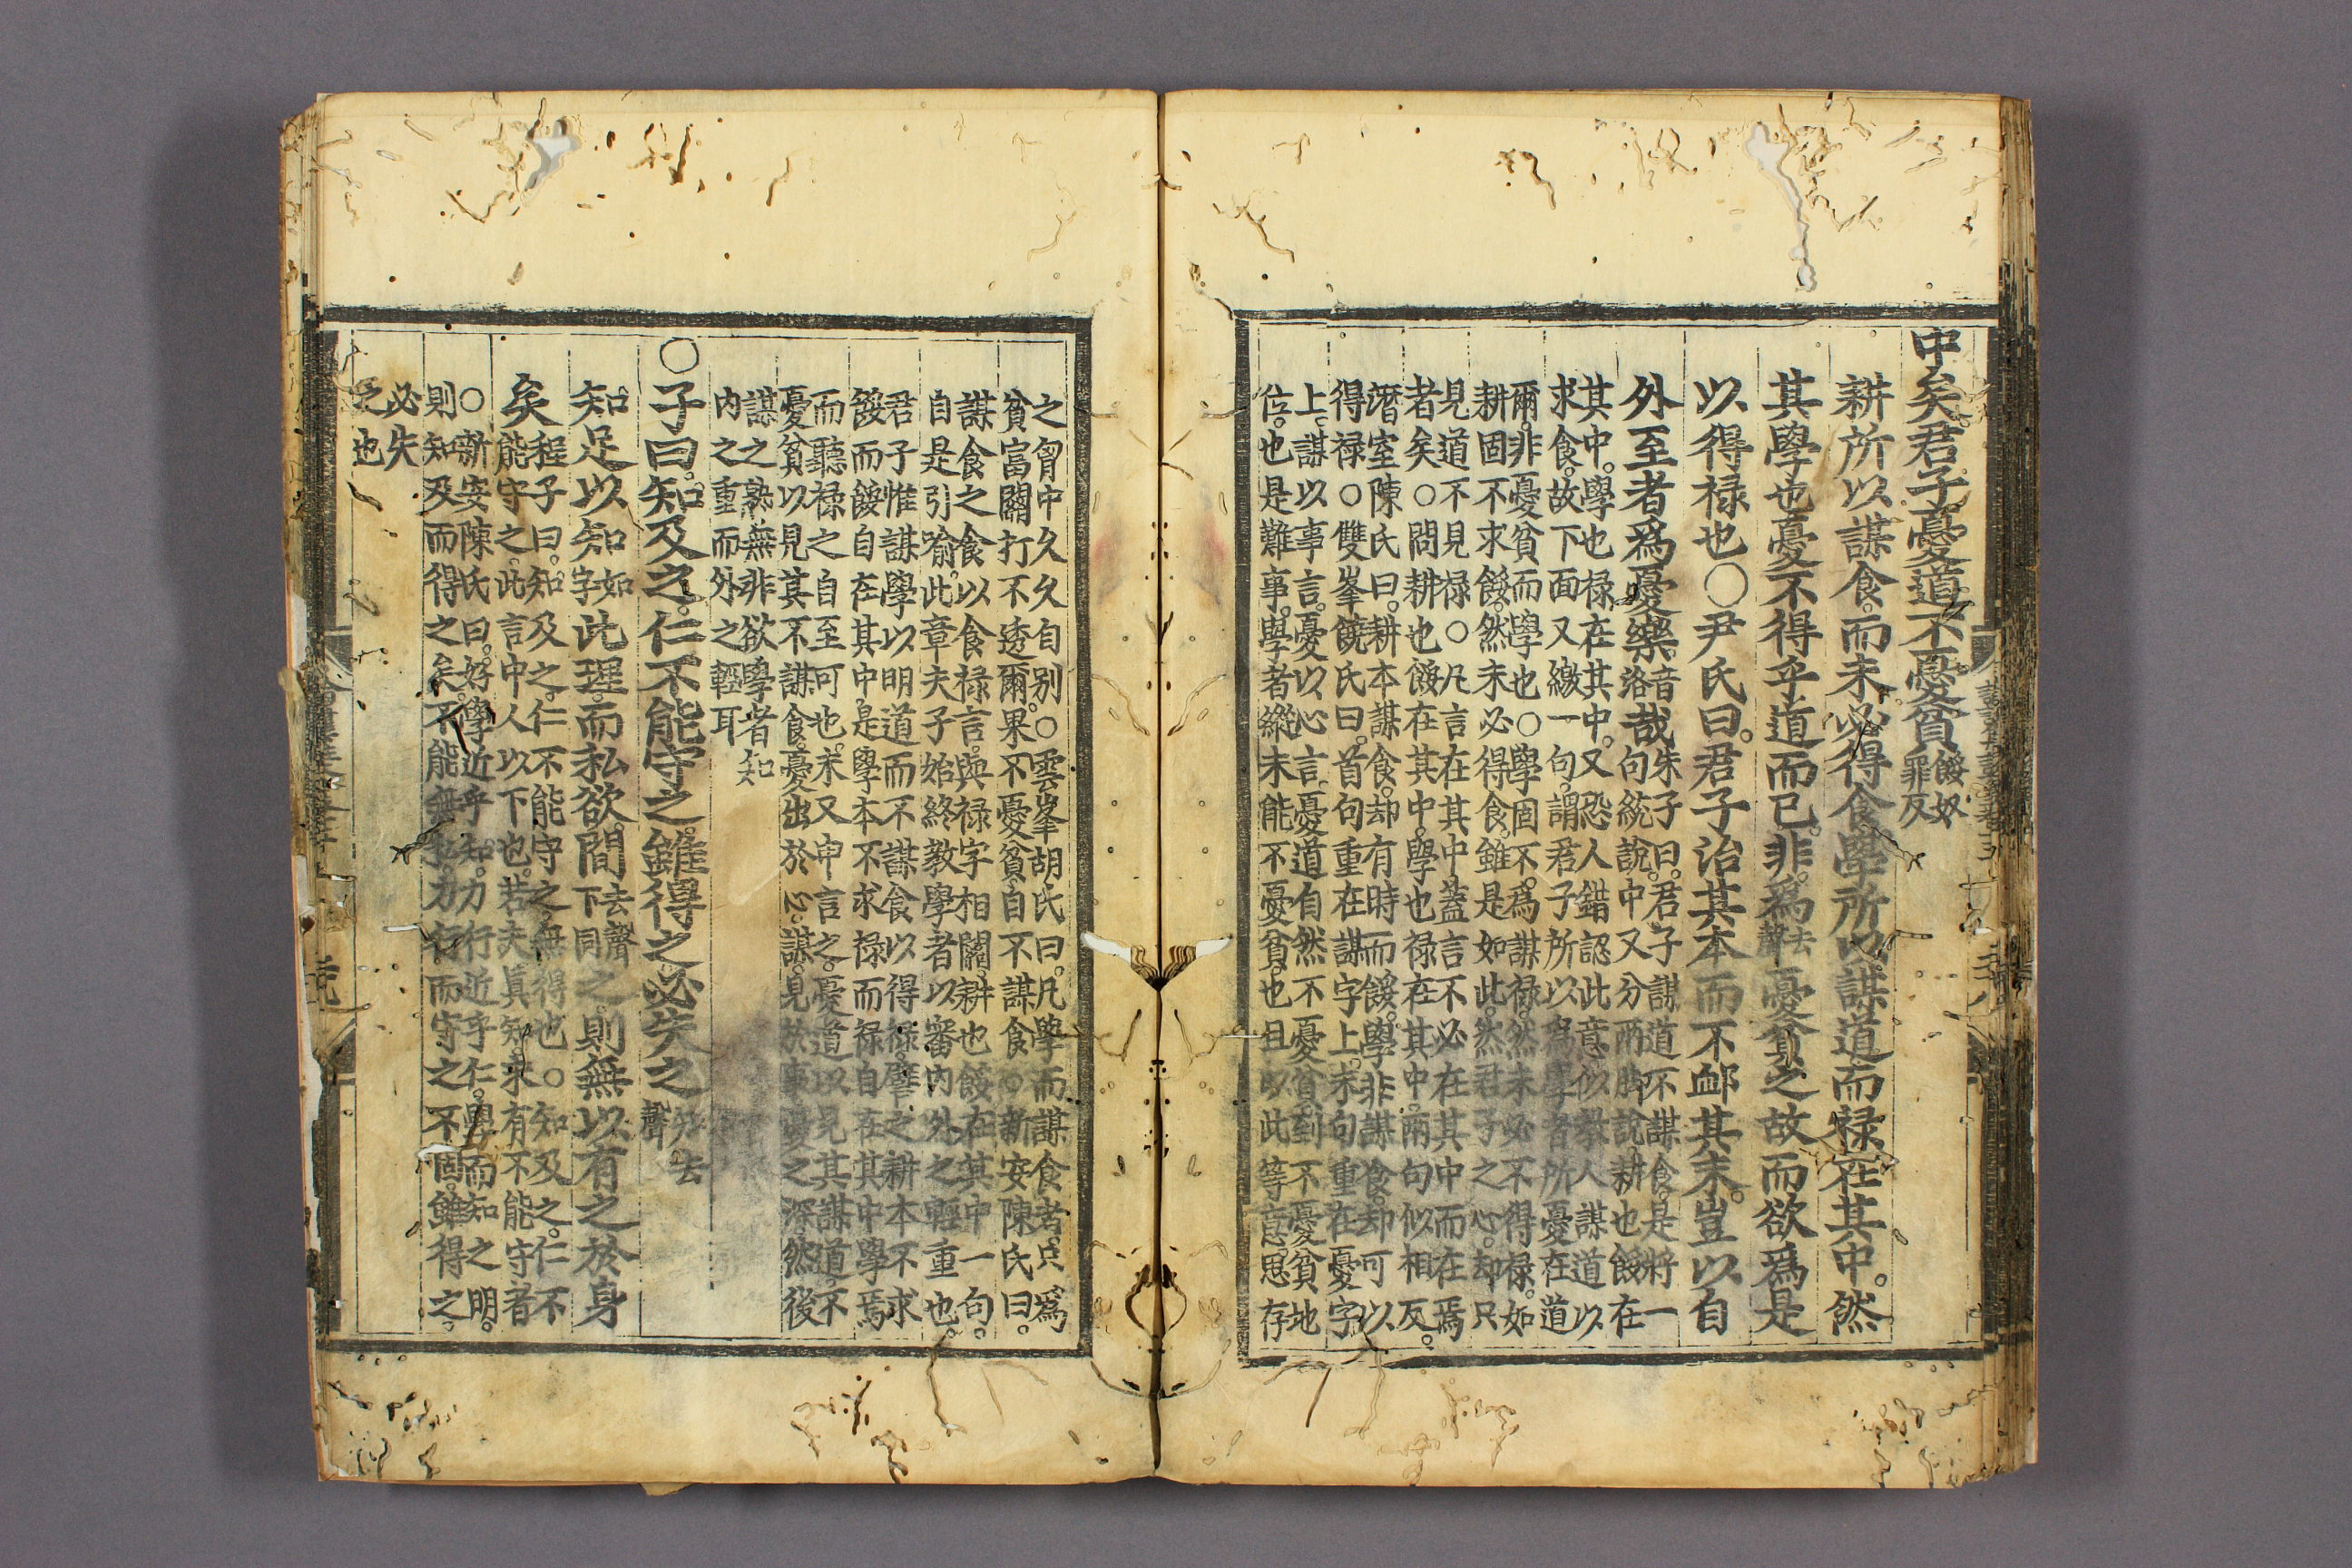 中矣君子憂道不憂貧餒奴罪反
耕所以謀食而未必得食學所以謀道而祿在其中然
其學也憂不得乎道而已非爲去聲憂貧之故而欲爲是
以得祿也○尹氏曰君子治其本而不卹其末豈以自
外至者爲憂樂音洛哉朱子曰君子謀道不謀食是將一
句統說中又分兩脚說耕也餒在
其中學也祿在其中又恐人錯認此意似教人謀道以
求食故下面又繳一句謂君子所以爲學者所憂在道
爾非憂貧而學也○學固不爲謀祿然未必不得祿如
耕固不求餒然未必得食雖是如此然君子之心却只
見道不見祿○凡言在其中蓋言不必在其中而在焉
者矣○問耕也餒在其中學也祿在其中兩句似相反
潛室陳氏曰耕本謀食却有時而餒學非謀食却可以
得祿○雙峯饒氏曰首句重在謀字上末句重在憂字
上謀以事言憂以心言憂道自然不憂貧到不憂貧地
位也是難事學者縱未能不憂貧也且以此等意思存
之胷中久久自別○雲峯胡氏曰凡學而謀食者只爲
貧富關打不透爾果不憂貧自不謀食○新安陳氏曰
謀食之食以食祿言與祿字相關耕也餒在其中一句
自是引喻此章夫子始終教學者以審內外之輕重也
君子惟謀學以明道而不謀食以得祿譬之耕本不求
餒而餒自在其中是學本不求祿而祿自在其中學焉
而聽祿之自至可也末又申言之憂道以見其謀道不
憂貧以見其不謀食憂出於心謀見於事憂之深然後
謀之熟無非欲學者知
內之重而外之輕耳
○子曰知及之仁不能守之雖得之必失之知去聲
知足以知如字此理而私欲間去聲下同之則無以有之於身
矣程子曰知及之仁不能守之無得也○知及之仁不
能守之此言中人以下也若夫眞知未有不能守者
○新安陳氏曰好學近乎知力行近乎仁學而知之明
則知及而得之矣不能無私力行而守之不固雖得之
必失
之也